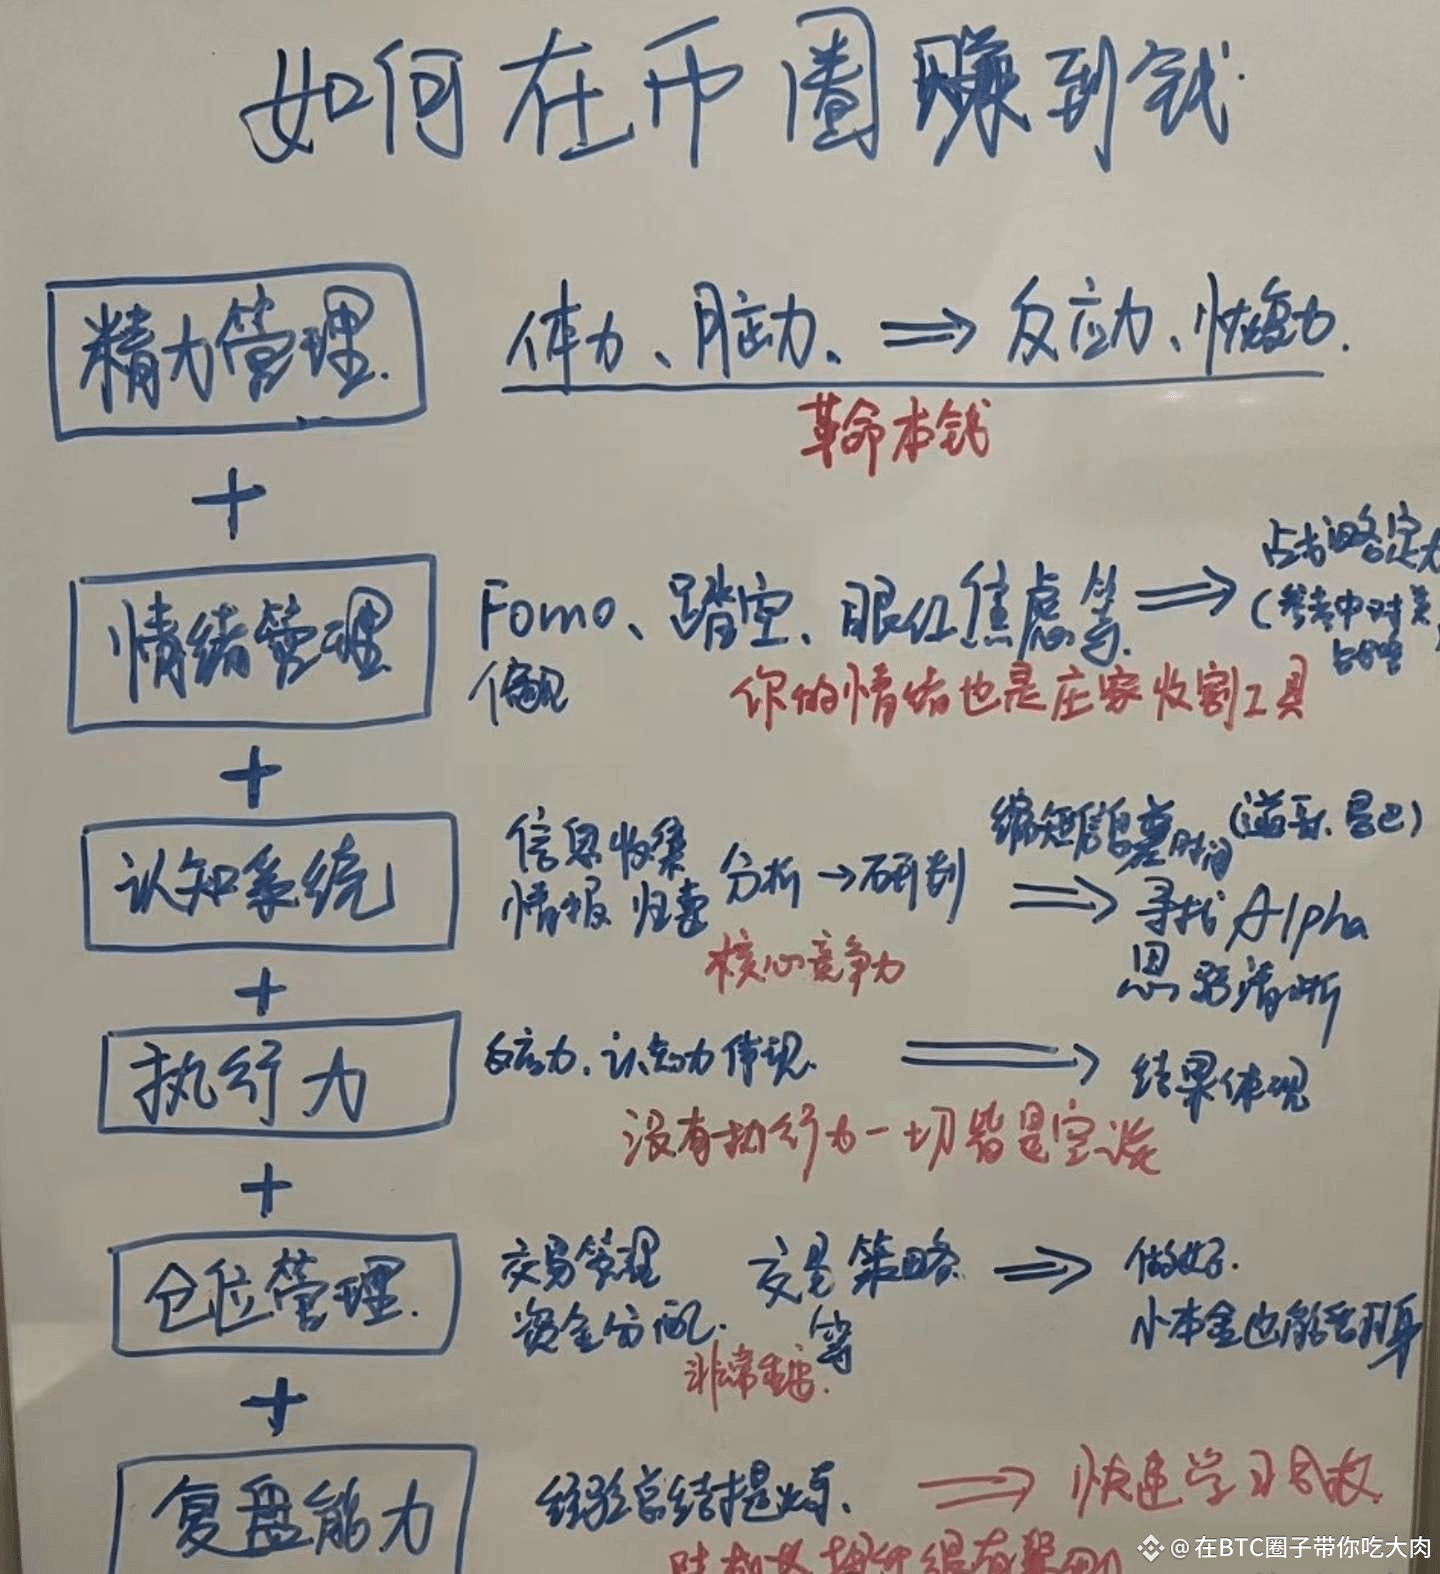 如何在币圈赚到钱.
精力管理.
体力、脑力、⇒反应力、恢复力.
革命本钱
+
情绪管理
Fomo、踏空、眼红焦虑等.⇒
偏见
战略定力
(参考中对美
你的情绪也是庄家收割工具
+
认知系统
信息收集
情报归类
分析→研判⇒
缩短信息差时间
寻找Alpha
思路清晰
核心竞争力
+
执行力
反应力、认知力体现.⇒结果体现
没有执行力一切皆是空谈
+
仓位管理.
交易管理
资金分配.
交易策略
等
⇒做好.
小本金也能翻身
非常重要.
+
复盘能力
经验总结提炼、⇒快速学习
@在BTC圈子带你吃大肉